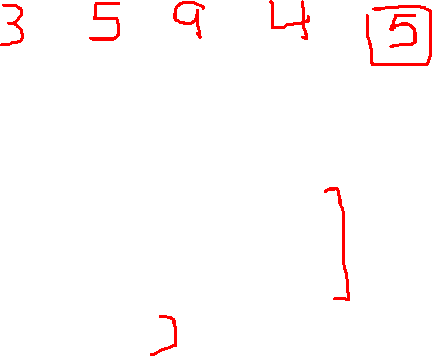 3 5 9 4 5
]